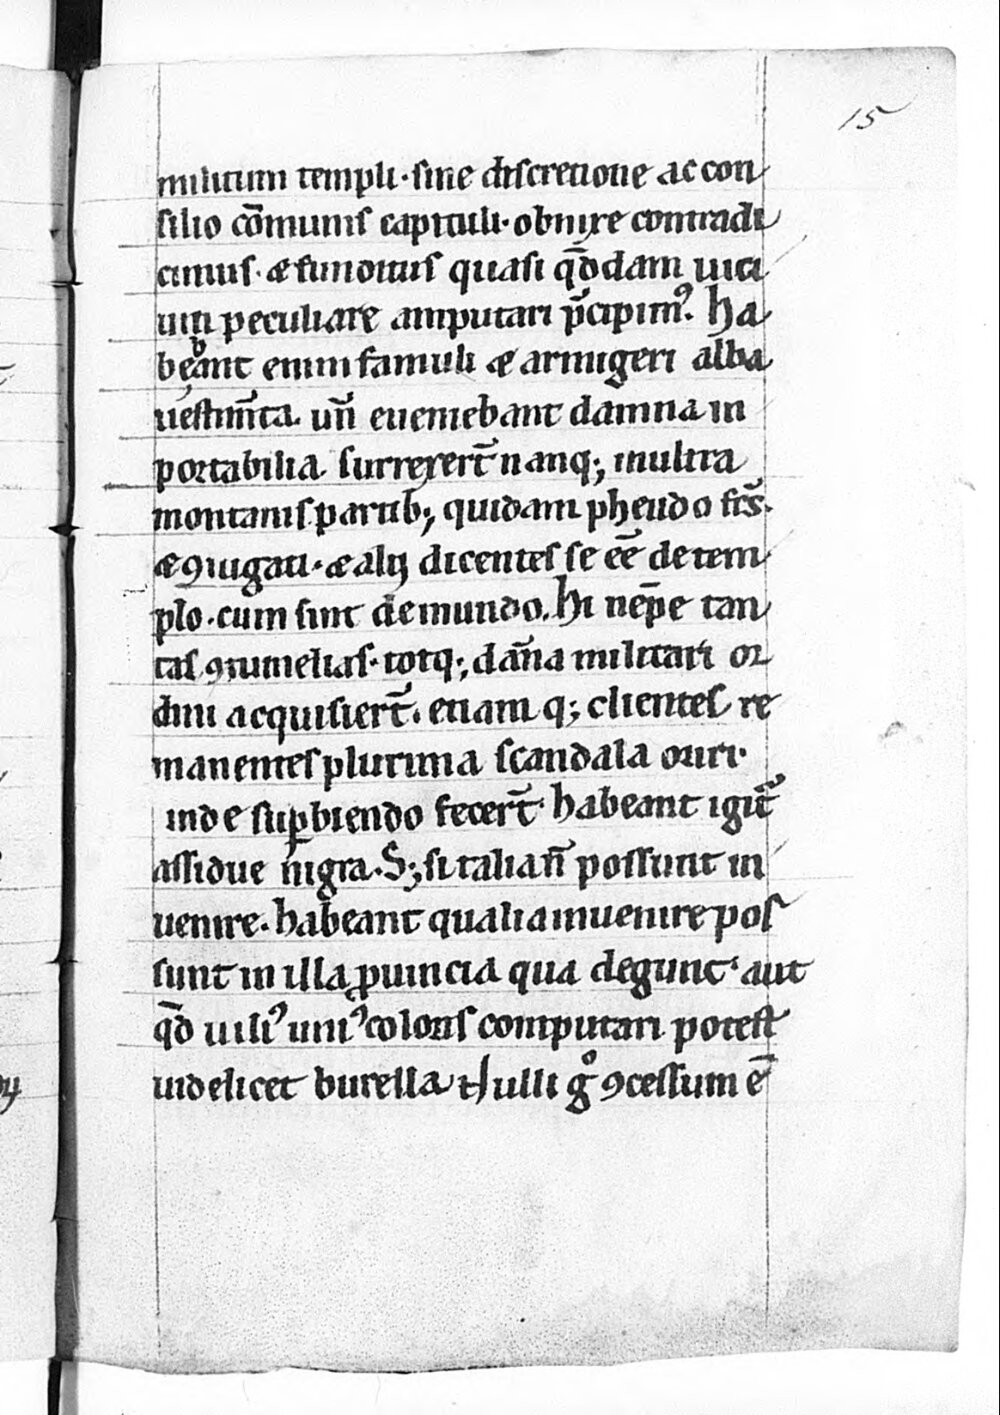 15
militum templi · sine discretione ac con
silio cōmunis capituli · obnixe contradi
cimus · & funditus quasi q̄ddam uici
um peculiare amputari p̄cipimꝰ. Ha
bebant enim famuli & armigeri alba
uestim̄ta. un̄ eueniebant damna in
portabilia. surrexer̄t nanq; in ultra
montanis partib; quidam pseudo fr̄s.
& ꝯiugati · & alij dicentes se eē de tem
plo · cum sint de mundo. Hi nēpe tan
tas ꝯtumelias · totq; dāna militari or
dini acquisier̄t. etiam q; clientes re
manentes plurima scandala oriri ·
inde sup̱biendo fecer̄t. habeant igit̄
assidue nigra · S; si talia n̄ possunt in
uenire · habeant qualia inuenire pos
sunt in illa ꝓuincia qua degunt · aut
q̄d uiliꝰ uniꝰ coloris computari potest
uidelicet burella Nulli gͦ ꝯcessum ē